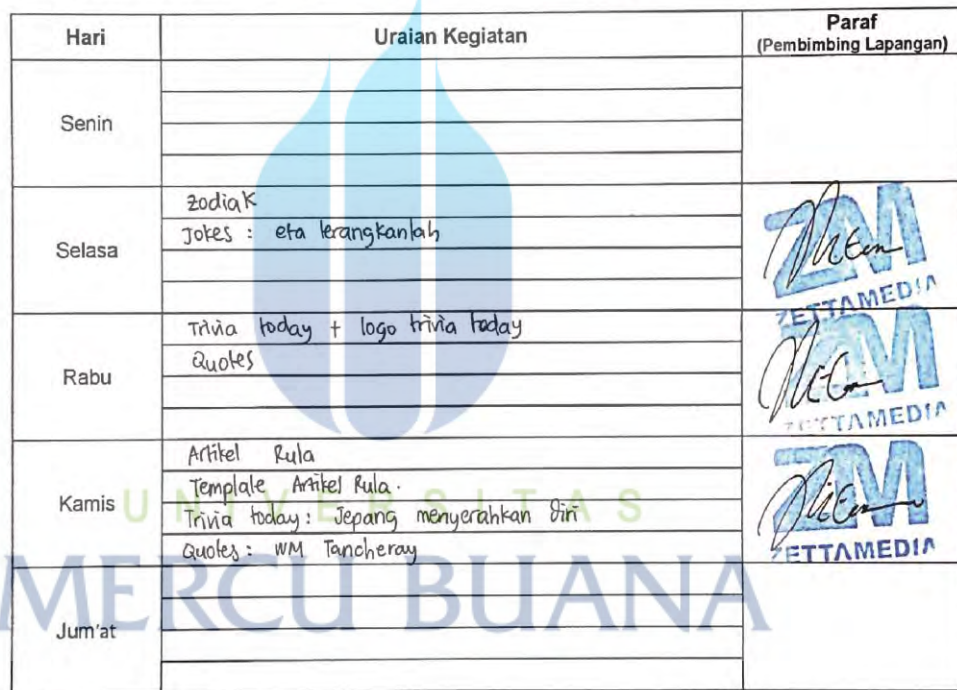 Hari Uraian Kegiatan Paraf
(Pembimbing Lapangan)
Senin
Selasa
Zodiak
Jokes : eta terangkanlah
ZM
ZETTAMEDIA
Rabu
Trivia today + logo trivia today
Quotes
ZM
ZETTAMEDIA
Kamis
Artikel Rula
Template Artikel Rula.
Trivia today : Jepang menyerahkan diri
Quotes : WM Tancheray
ZM
ZETTAMEDIA
UNIVERSITAS
MERCU BUANA
Jum'at